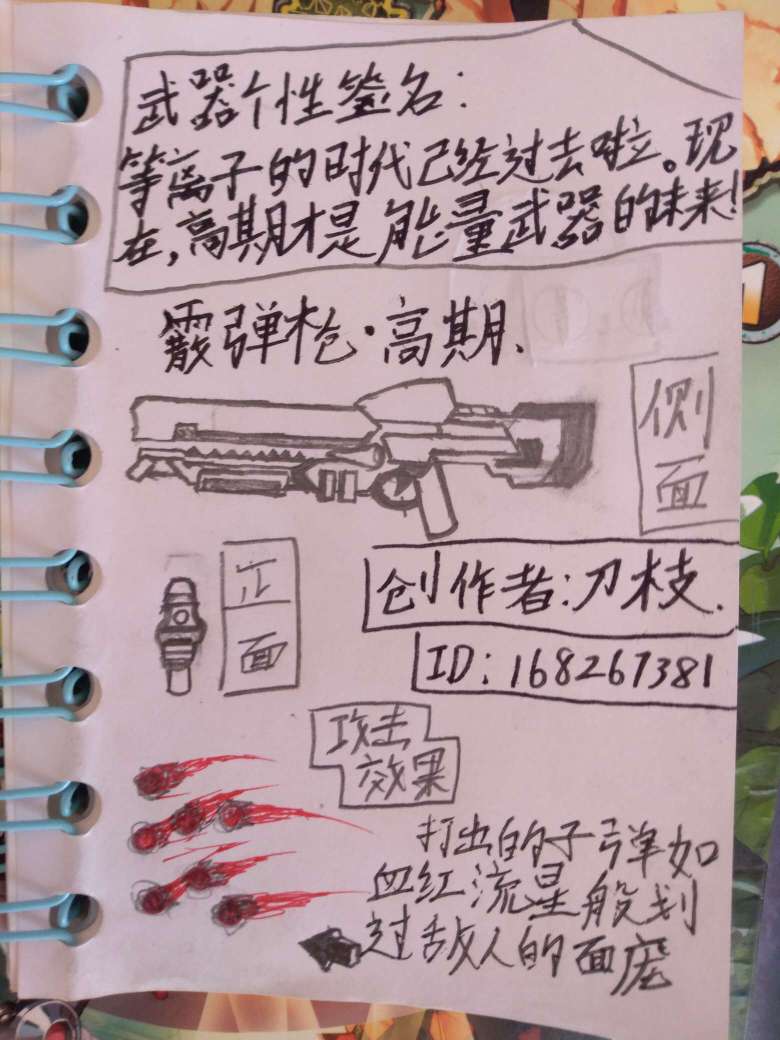 武器个性签名：
等离子的时代已经过去啦。现
在，高期才是能量武器的未来！
霰弹枪·高期.
侧
面
正
面
创作者：刀枝.
ID：168267381
攻击
效果
打出的子弹如
血红流星般划
过敌人的面庞